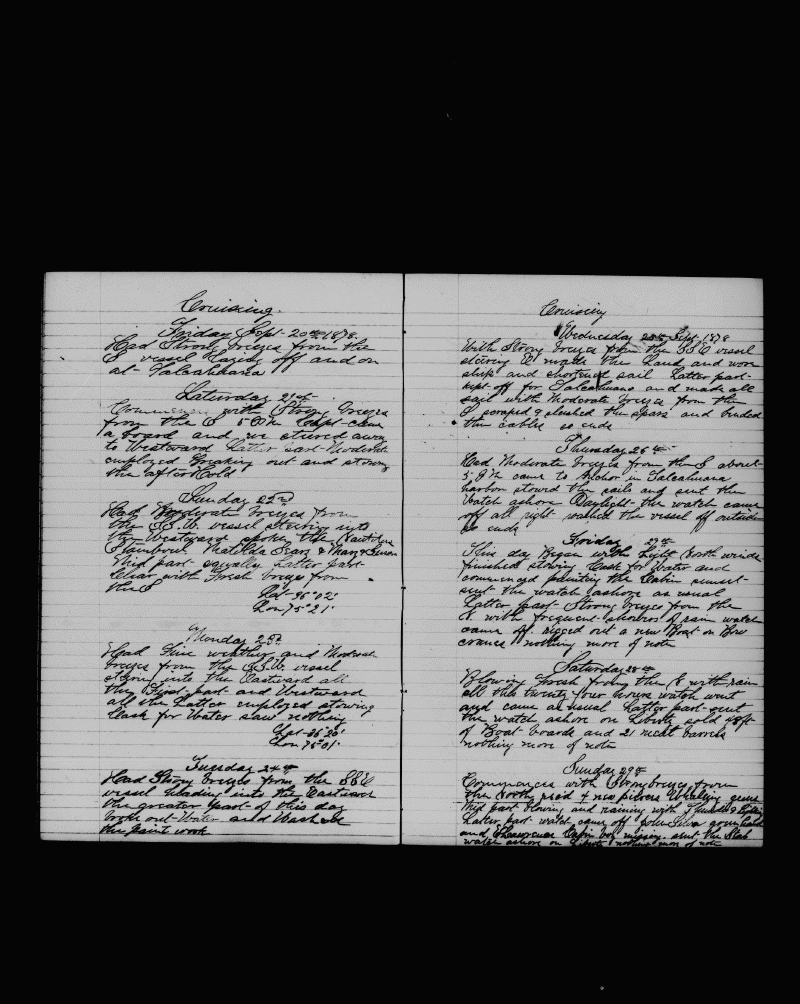 Cruising.
Friday Sept. 20th 1878.
Had Strong breezes from the
S vessel laying off and on
at Talcahuana
Saturday 21st
Commences with Strong breezes
from the S 5 Capt came
a board and we steered away
to Westward Latter part Moderate
employed Breaking out and stowing
the after Hold
Sunday 22nd
Had Moderate breezes from
the S.S.W. vessel Steering into
the Westward spoken the
Stamboul Matilda Sears & Mary & Susan
Mid part squally Latter part
Clear with Fresh breezes from
the S
Lat 36°02'
Lon 75°21'
Monday 23d
Had Fine weather and Moderate
breezes from the S.S.W. vessel
steering into the Eastward all
the First part and Westward
all the Latter employed stowing
Cask for Water saw nothing
Lat 36°26'
Lon 76°01'
Tuesday 24th
Had Strong breezes from the SSE
vessel heading into the Eastward
the greater part of this day
broke out Water and Washed
the paint work
Cruising
Wednesday 25th Sept. 1878
With Strong breezes from the SSE vessel
steering E made the Land and wore
ship and shortened sail Latter part
kept off for Talcahuano and made all
sail with Moderate breezes from the
S scraped & slushed the spars and bended
the cables so ends
Thursday 26th
Had Moderate breezes from the S about
5 came to Anchor in Talcahuana
harbor stowed the sails and sent the
Watch ashore Daylight the watch came
off all right washed the vessel off outside
so ends
Friday 27th
This day Began with Light North winds
finished stowing Cask for Water and
commenced painting the Cabin sunset
sent the watch ashore as usual
Latter part Strong breezes from the
N with frequent showers of rain watch
came off rigged out a new Boat on Bow
cranes nothing more of note
Saturday 28th
Blowing Fresh from the N with rain
all this twenty four hours watch went
and came as usual Latter part sent
the watch ashore on Liberty sold 48 ft
of Boat boards and 21 meat barrels
nothing more of note
Sunday 29th
Commences with Strong breezes from
the North 4 new pieces Whaling
Mid part blowing and raining with Thunder &
Latter part watch came off John Silva
and Cabin boy missing sent the Stab
watch ashore on Liberty nothing more of note